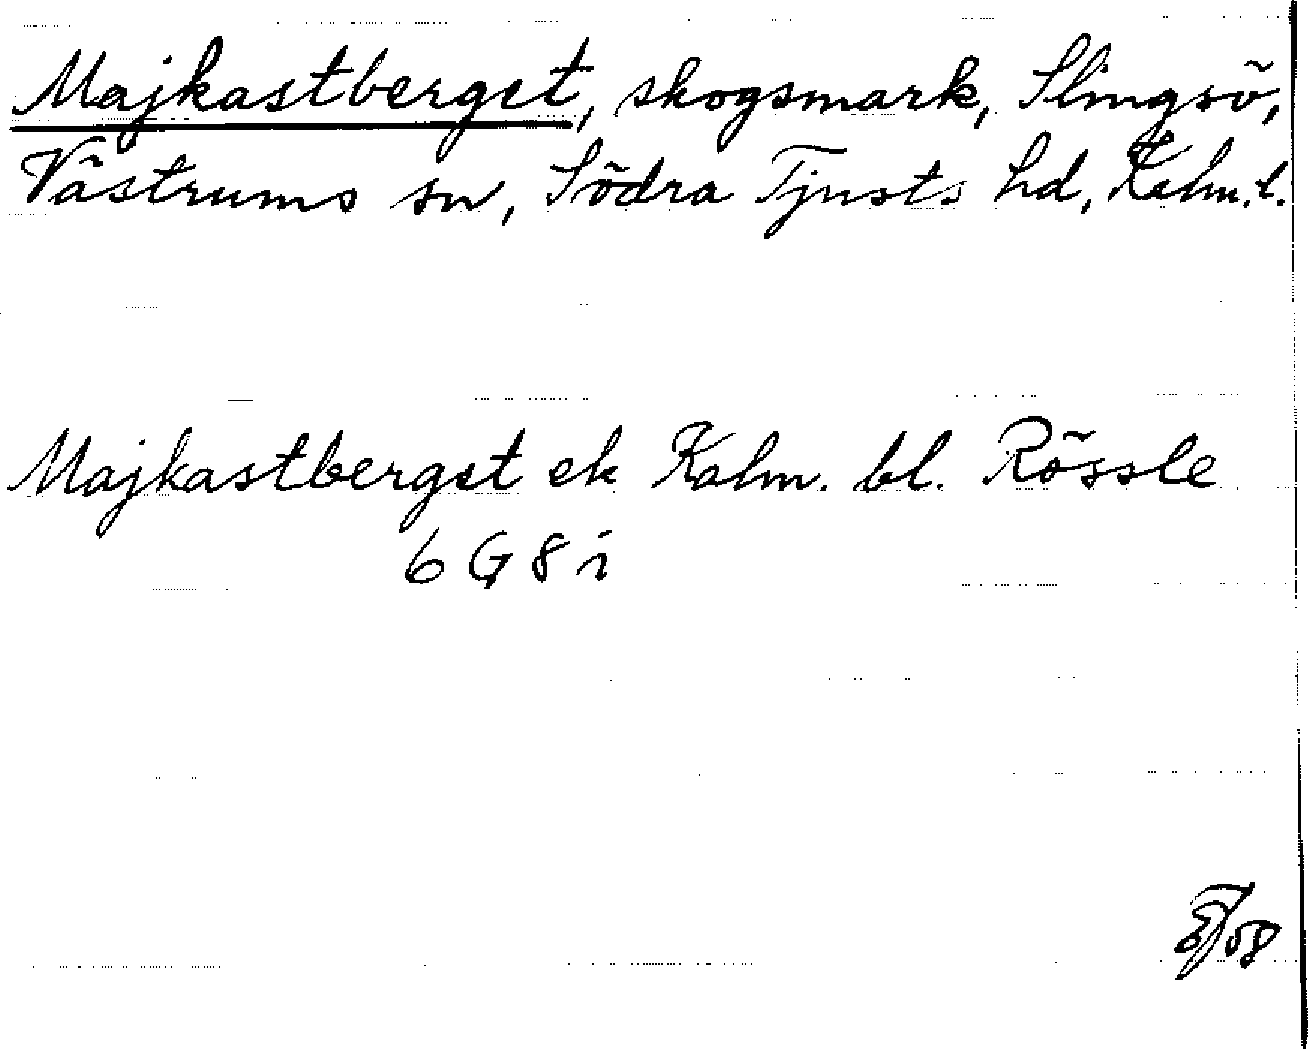 Majkastberget, skogsmark, Slingsö,
Västrums sn, Södra Tjusts hd, Kalm.l.
Majkastberget ek Kalm. bl. Rössle
6 G 8 i